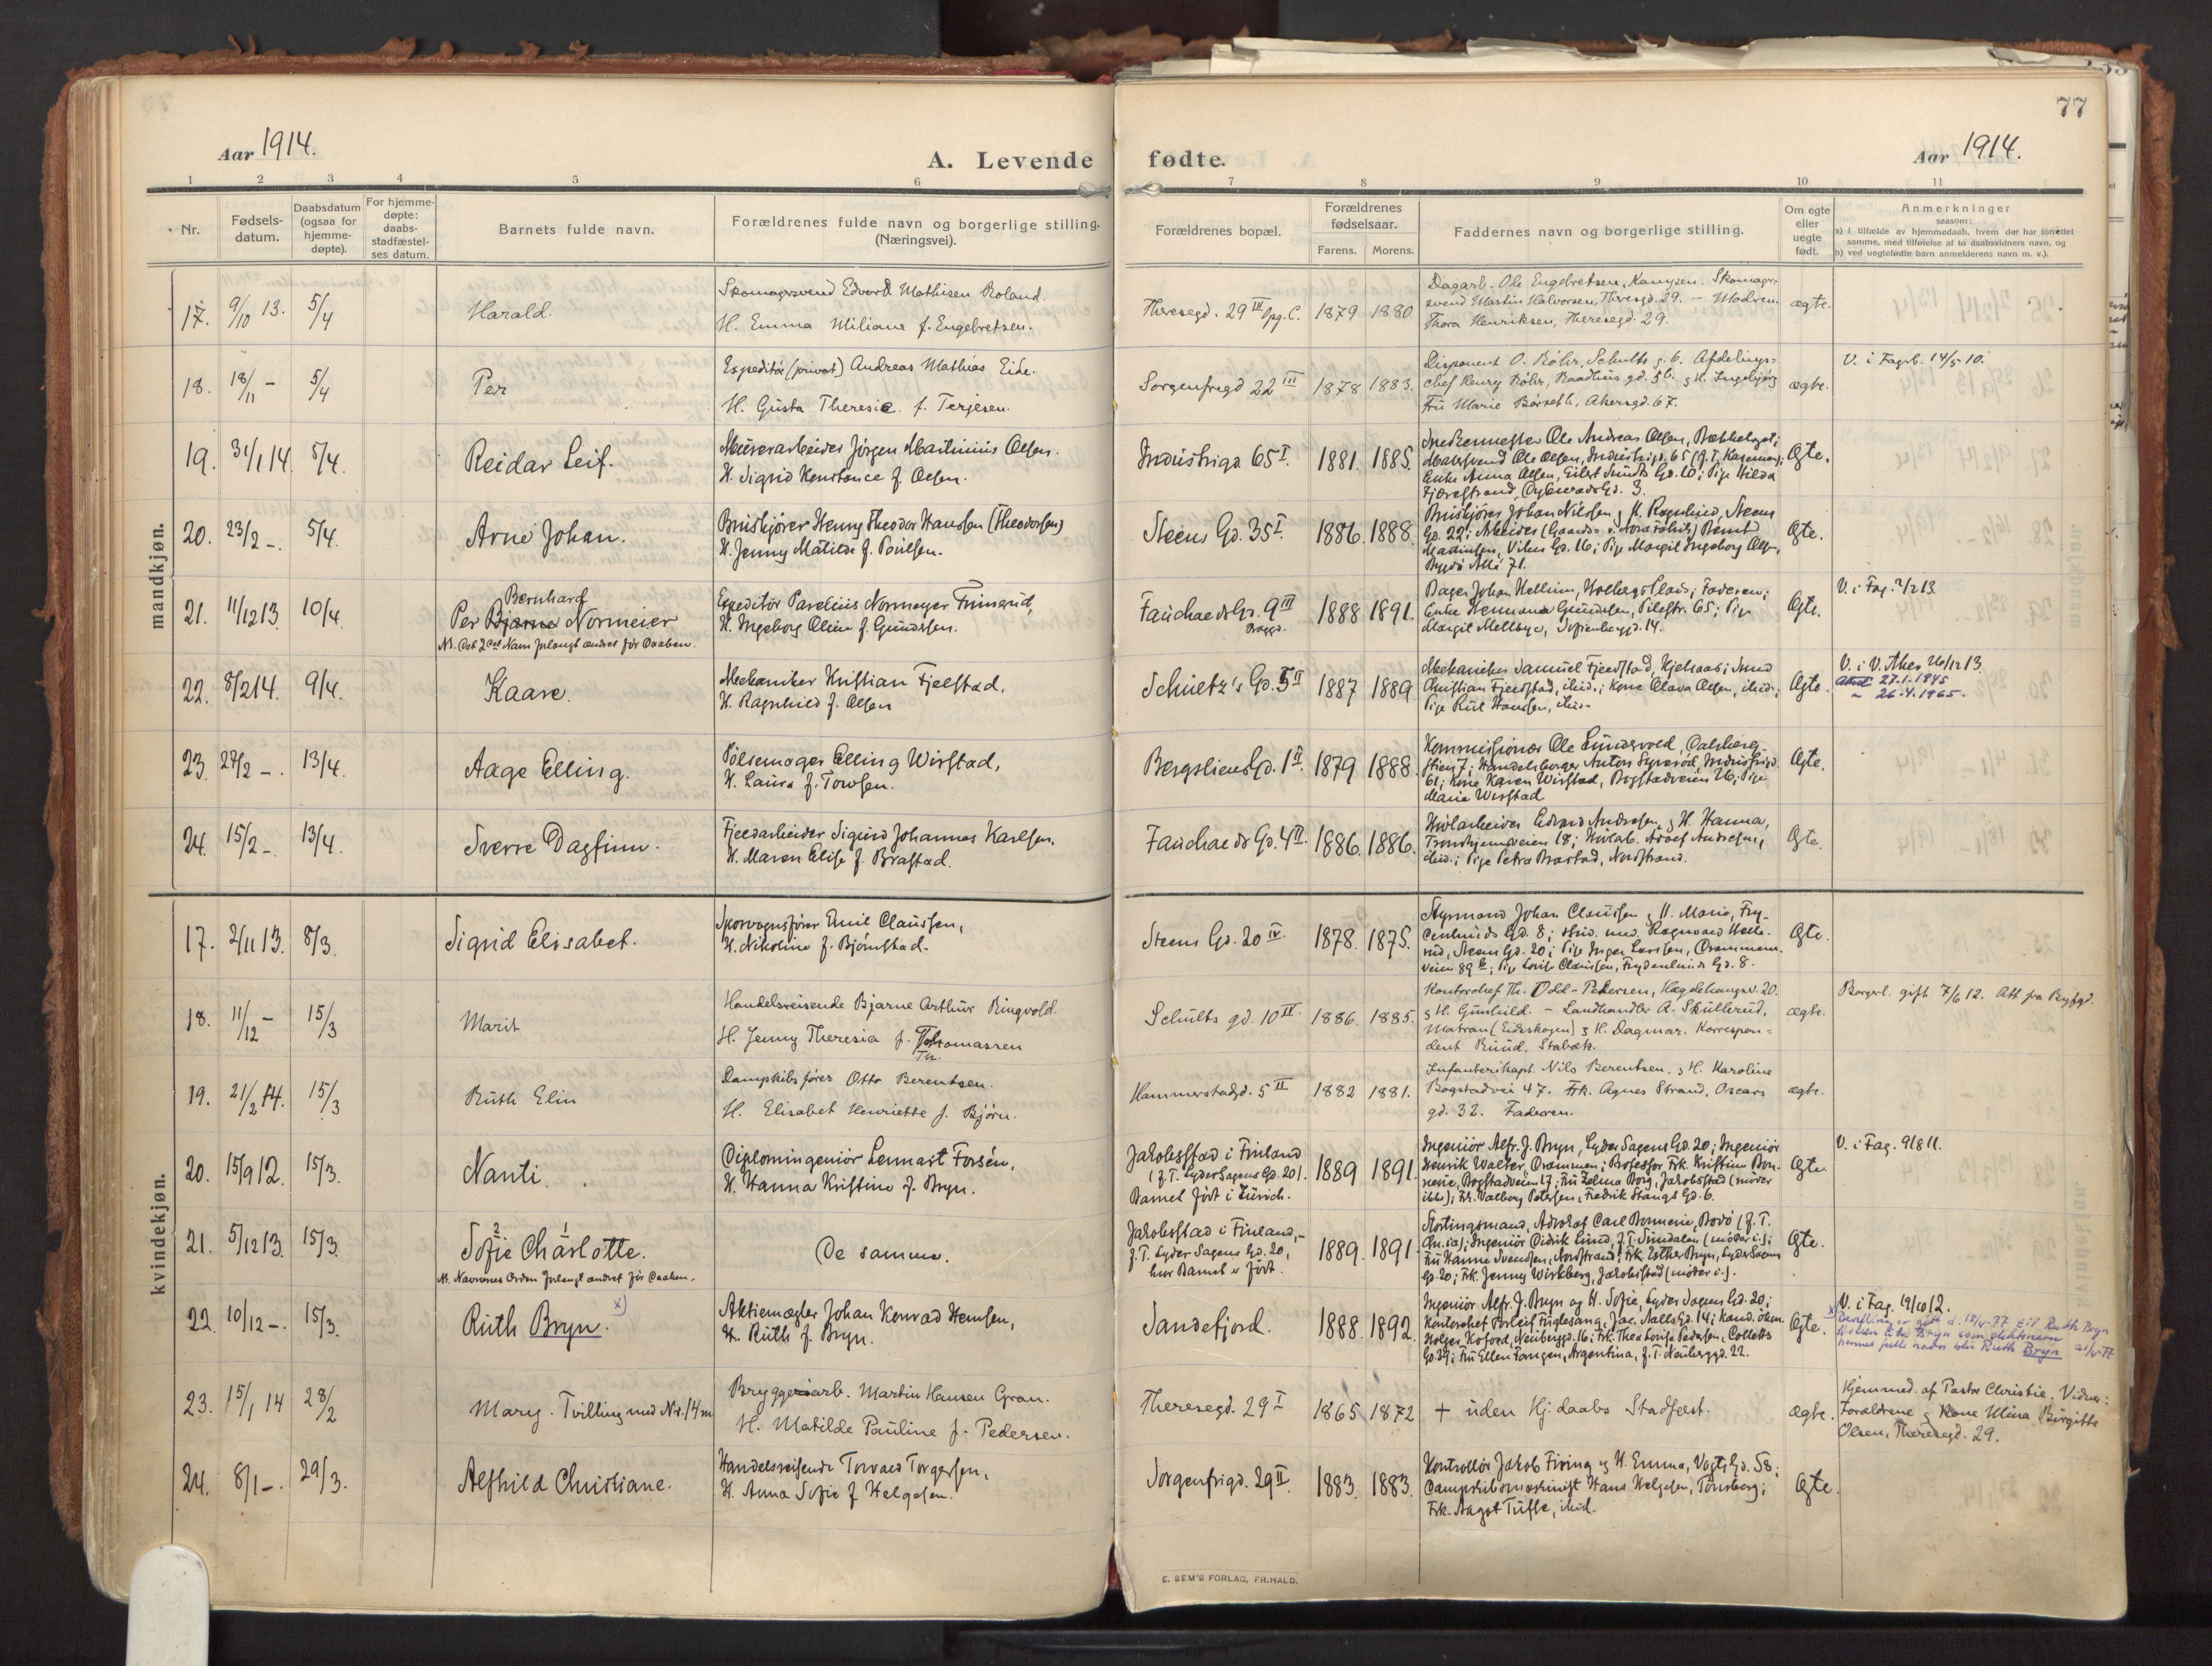 77
Aar 1914.
A. Levende fødte.
Aar 1914.
1 2 3 4 5 6 7 8 9 10 11
Nr.
Fødsels-
datum.
Daabsdatum
(ogsaa for
hjemme-
døpte).
For hjemme-
døpte:
daabs-
stadfæstel-
ses datum.
Barnets fulde navn.
Forældrenes fulde navn og borgerlige stilling.
(Næringsvei).
Forældrenes bopæl.
Forældrenes
fødselsaar.
Farens. Morens.
Faddernes navn og borgerlige stilling.
Om egte
eller
uegte
født.
Anmerkninger
saasom:
a) i tilfælde av hjemmedaab, hvem der har forrettet
samme, med tilføielse af to daabsvidners navn, og
b) ved uegtefødte barn anmelderens navn m. v.).
mandkjøn.
17. 9/10 13. 5/4
Harald.
Skomagersvend Edvard Mathisen Roland.
H. Emma Miliane f. Engebretsen.
Theresegd. 29 III Opg. C. 1879 1880
Dagarb. Ole Engebretsen, Kampen. Skomager-
svend Martin Halvorsen, Theresgd. 29. — Modren.
Thora Henriksen, Theresegd. 29.
ægte.
18. 18/11 – 5/4
Per
Expeditør (privat) Andreas Mathias Eide.
H. Gusta Theresie f. Terjesen.
Sorgenfrigd 22 III 1878 1883.
Disponent O. Röhr, Schults g. 6. Afdelings-
chef Henry Röhr, Raadhus gd. & H. Ingebjørg
Fru Marie Børseth, Akersgd. 67.
ægte.
V. i Fagrb. 14/5 10.
19. 31/1 14. 5/4.
Reidar Leif.
Murerarbeider Jörgen Martinius Olsen.
H. Sigrid Konstance f. Olsen.
Industrigd. 65 I. 1881. 1885.
Snekermester Ole Andreas Olsen,
Malersvend Ole Olsen, Industrigd. 65
Enke Anna Olsen, Eilert Sundts Gd. 10; Pige Hilda
Fjærestrand, 3.
Egte.
20. 23/2 –. 5/4.
Arne Johan.
Bruskjører Henry Theodor Hansen (Theodorsen)
H. Jenny Matilde f. Poulsen.
Steens Gd. 35 I. 1886. 1888.
Bruskjører Johan Nilsen & H. Ragnhild, Steens
Gd. 22; Arbeider Bernt
Martinsen, Vibes Gd. 16; Pige Margit Ingeborg Olsen,
Bygdö Allé 71.
Egte.
21. 11/12 13. 10/4.
Bernhard
Per Bjarne Normeier
NB. Det 2det Navn forlangt ændret før Daaben.
Expeditör Parelius Normeyer Frimerud,
H. Ingeborg Oline f. Gundersen.
Fauchalds Gd. 9 III
Baggd.
1888 1891.
Bager Johan Hellum, Holbergs Plads; Faderen;
Enke Hermana Gundersen, Pilestr. 65; Pige
Margit Mellbye, Sofienberggd. 14.
Egte.
V. i Fag. 7/12 13.
22. 8/2 14. 9/4.
Kaare.
Mekaniker Kristian Fjelstad,
H. Ragnhild f. Olsen
Schultz's Gd. 5 II 1887 1889
Mekaniker Samuel Fjeldstad, Kjelsaas; Smed
Christian Fjeldstad, ibid.; Kone Olava Olsen, ibid.;
Pige Rut Hansen, ibid.
Egte.
V. i V. Aker 26/12 13.
Attest 27.1.1945
" 26.4.1965.
23. 24/2 –. 13/4.
Aage Elling.
Pölsemager Elling Wirstad,
H. Laura f. Towsen.
Bergsliens Gd. 1 II. 1879 1888.
Kommissionær Ole Lundsvold, Calsberg-
stien 7; Handelsborger Anton Syverød, Industrigd.
61; Kone Karen Wirstad, Bogstadveien 26; Pige
Marie Wirstad
Egte.
24. 15/2 –. 13/4.
Sverre Dagfinn.
Fjeldarbeider Sigurd Johannes Karlsen.
H. Maren Elise f. Brastad.
Fauchalds Gd. 4 II. 1886. 1886.
Hivlarbeider Edvard Andresen & H. Hanna,
Trondhjemsveien 18; Adolf Andresen,
ibid.; Pige Petra Brastad, Nordstrand.
Egte.
kvindekjøn.
17. 2/11 13. 8/3.
Sigrid Elisabet.
Sporvognsfører Emil Claussen,
H. Nikoline f. Björnstad.
Steens Gd. 20 IV. 1878. 1875.
Styrmand Johan Claussen & H. Marie, Fry-
denlunds Gd. 8; Ragnvald
Steens Gd. 20; Pige Inger Larsen, Drammens-
veien 89 b; Pige Lovise Claussen, Frydenlunds Gd. 8.
Egte.
18. 11/12 – 15/3
Marit
Handelsreisende Bjarne Arthur Ringvold.
H. Jenny Theresia f. Thomassen
Th.
Schults gd. 10 II. 1886. 1885.
Kontorchef Th. Odd-Pedersen, Hægdehaugsv. 20.
& H. Gunhild. – Landhandler A. Skullerud,
Matran (Eidskogen) & H. Dagmar. Korrespon-
dent Ruud, Stabæk.
ægte.
Borgerl. gift 7/6 12. Att fra Byfgd.
19. 21/2 14. 15/3
Ruth Elin
Dampskibsfører Otto Berentsen.
H. Elisabet Henriette f. Bjørn.
Hammerstadgd. 5 II 1882 1881.
Infanterikapt. Nils Berentsen. & H. Karoline
Bogstadvei 47. Frk. Agnes Strand, Oscars
gd. 32. Faderen.
ægte.
20. 15/9 12. 15/3.
Nanti.
Diplomingeniör Lennart Forsén,
H. Hanna Kristine f. Bryn.
Jakobsstad i Finland
(f. T. Lyder Sagens Gd. 20).
Barnet født i Zürich.
1889 1891.
Ingeniör Alfr. J. Bryn, Lyder Sagens Gd. 20; Ingeniör
Henrik Walter, Drammen; Professor Frk. Kristine Bon-
nevie, Bogstadveien 17; Fru Zelma Borg, Jakobsstad (møder
ikke); Fr. Valborg Petersen, Fredrik Stangs Gd. 6.
Egte.
V. i Fag. 9/8 11.
21. 5/12 13. 15/3.
2 1
Sofie Charlotte.
NB. Navnenes Orden forlangt ændret før Daaben.
De samme.
Jakobsstad i Finland,–
f. T. Lyder Sagens Gd. 20,
hvor Barnet er født.
1889. 1891.
Stortingsmand, Advokat Carl Bonnevie, Bodö (f. T.
Kr.ia); Ingeniör Didrik Lund, f. T. Sundalen (møder i.);
Fru Hanne Svendsen, Nordstrand; Frk. Esther Bryn, Lyder Sagens
Gd. 20; Frk. Jenny Wirkberg, Jakobsstad (møder i.).
Egte.
22. 10/12 –. 15/3.
Ruth Bryn. x)
Aktiemægler Johan Konrad Hemsen,
H. Ruth f. Bryn.
Sandefjord. 1888. 1892.
Ingeniör Alfr. J. Bryn og H. Sofie, Lyder Sagens Gd. 20;
Kontorchef Torleif Fuglesang, Jac. Aalls Gd. 14; Kand. ökon.
Holger Koford, Neuberggd. 16; Frk. Thea Lovise Pedersen, Colletts
Gd. 39; Fru Ellen Tangen, Argentina, f. T. Neuberggd. 22.
Egte.
V. i Fag. 19/10 12.
x) Bevilling er gitt d. til Ruth Bryn
Bryn som slektsnavn
hennes fulle navn blir Ruth Bryn
23. 15/1 14 28/2
Mary. Tvilling med Nr. 14 m
Bryggeriarb. Martin Hansen Gran.
H. Matilde Pauline f. Pedersen.
Theresegd. 29 I 1865 1872
+ uden Hj: daabs Stadfæst.
ægte.
Hjemmed. af Pastor Christie. Vidner:
Forældrene & Kone Mina Birgitte
Olsen, Theresegd. 29.
24. 8/1 –. 29/3.
Alfhild Christiane.
Handelsreisende Torvald Torgersen,
H. Anna Sofie f. Helgesen.
Sorgenfrigd. 29 II. 1883. 1883.
Kontrollör Jakob Firing og H. Emma, Vogts Gd. 58;
Dampskibsmaskinist Hans Helgesen, Tönsberg;
Frk. Aagot Tufte, ibid.
Egte.
E. SEM'S FORLAG, FR.HALD.